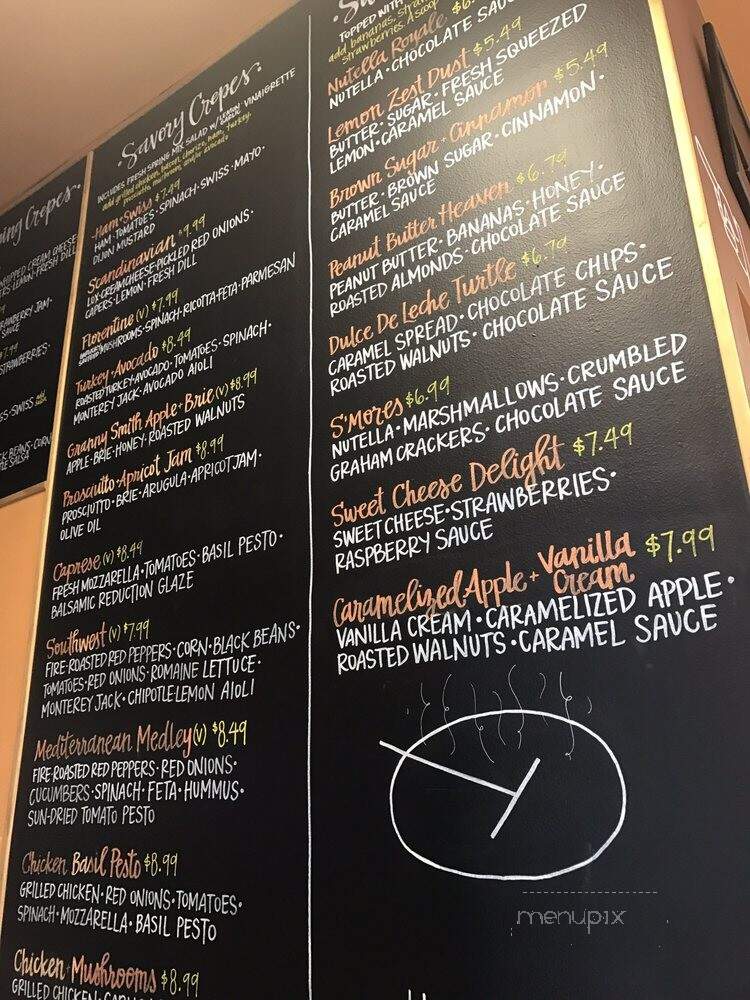 ng Crepes.
WHIPPED CREAM CHEESE
LEMON·FRESH DILL
JAM·
SAUCE
STRAWBERRIES·
SWISS
BEANS·CORN
SALSA
·Savory Crepes·
INCLUDES FRESH SPRING MIX SALAD W/ LEMON VINAIGRETTE
add grilled chicken, bacon, chorizo, ham, turkey,
prosciutto, and/or avocado
Ham·Swiss $7.49
HAM·TOMATOES·SPINACH·SWISS·MAYO·
DIJON MUSTARD
Scandinavian $9.99
LOX·CREAM CHEESE·PICKLED RED ONIONS·
CAPERS·LEMON·FRESH DILL
Florentine (V) $7.99
MUSHROOMS·SPINACH·RICOTTA·FETA·PARMESAN
Turkey·Avocado $8.49
ROASTED TURKEY·AVOCADO·TOMATOES·SPINACH·
MONTEREY JACK·AVOCADO AIOLI
Granny Smith Apple+Brie (V) $8.99
APPLE·BRIE·HONEY·ROASTED WALNUTS
Prosciutto·Apricot Jam $8.99
PROSCIUTTO·BRIE·ARUGULA·APRICOT JAM·
OLIVE OIL
Caprese (V) $8.49
FRESH MOZZARELLA·TOMATOES·BASIL PESTO·
BALSAMIC REDUCTION GLAZE
Southwest (V) $7.99
FIRE-ROASTED RED PEPPERS·CORN·BLACK BEANS·
TOMATOES·RED ONIONS·ROMAINE LETTUCE·
MONTEREY JACK·CHIPOTLE-LEMON AIOLI
Mediterranean Medley (V) $8.49
FIRE-ROASTED RED PEPPERS·RED ONIONS·
CUCUMBERS·SPINACH·FETA·HUMMUS·
SUN-DRIED TOMATO PESTO
Chicken Basil Pesto $8.99
GRILLED CHICKEN·RED ONIONS·TOMATOES·
SPINACH·MOZZARELLA·BASIL PESTO
Chicken·Mushrooms $8.99
GRILLED CHICKEN·
TOPPED WITH
add bananas,
strawberries. A scoop
Nutella Royale $6.
NUTELLA·CHOCOLATE SAUCE
Lemon Zest Dust $5.49
BUTTER·SUGAR·FRESH SQUEEZED
LEMON·CARAMEL SAUCE
Brown Sugar+Cinnamon $5.49
BUTTER·BROWN SUGAR·CINNAMON·
CARAMEL SAUCE
Peanut Butter Heaven $6.79
PEANUT BUTTER·BANANAS·HONEY·
ROASTED ALMONDS·CHOCOLATE SAUCE
Dulce De Leche Turtle $6.79
CARAMEL SPREAD·CHOCOLATE CHIPS·
ROASTED WALNUTS·CHOCOLATE SAUCE
S'Mores $6.99
NUTELLA·MARSHMALLOWS·CRUMBLED
GRAHAM CRACKERS·CHOCOLATE SAUCE
Sweet Cheese Delight $7.49
SWEET CHEESE·STRAWBERRIES·
RASPBERRY SAUCE
Caramelized Apple+Vanilla Cream $7.99
VANILLA CREAM·CARAMELIZED APPLE·
ROASTED WALNUTS·CARAMEL SAUCE
menupix